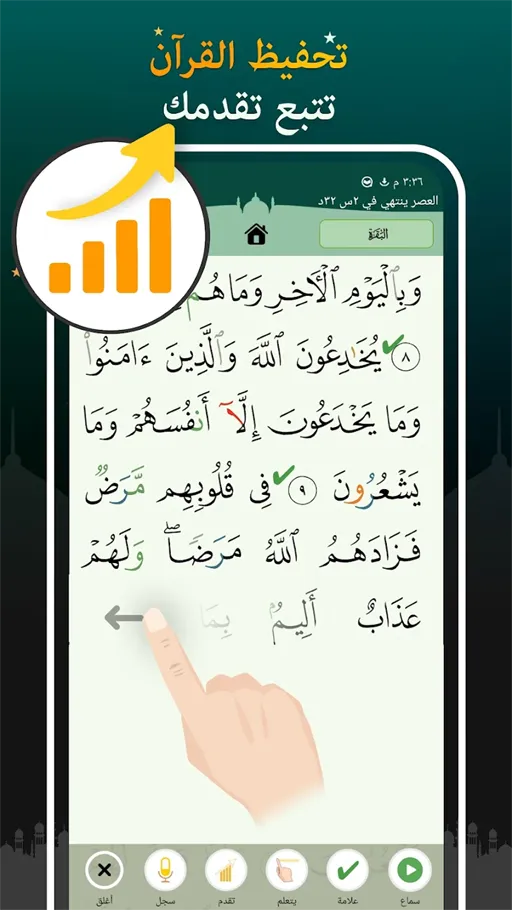 تحفيظ القرآن
تتبع تقدمك
٣:٣٦ م
العصر ينتهي في ٢س ٣٢د
البَقَرَة
وَبِٱلْيَوْمِ ٱلْأٓخِرِ وَمَا هُم
٨ يُخَٰدِعُونَ ٱللَّهَ وَٱلَّذِينَ ءَامَنُوا۟
وَمَا يَخْدَعُونَ إِلَّآ أَنفُسَهُمْ وَمَا
يَشْعُرُونَ ٩ فِى قُلُوبِهِم مَّرَضٌ
فَزَادَهُمُ ٱللَّهُ مَرَضًا ۖ وَلَهُمْ
عَذَابٌ أَلِيمٌۢ بِمَا
سماع
علامة
يتعلم
تقدم
سجل
أغلق